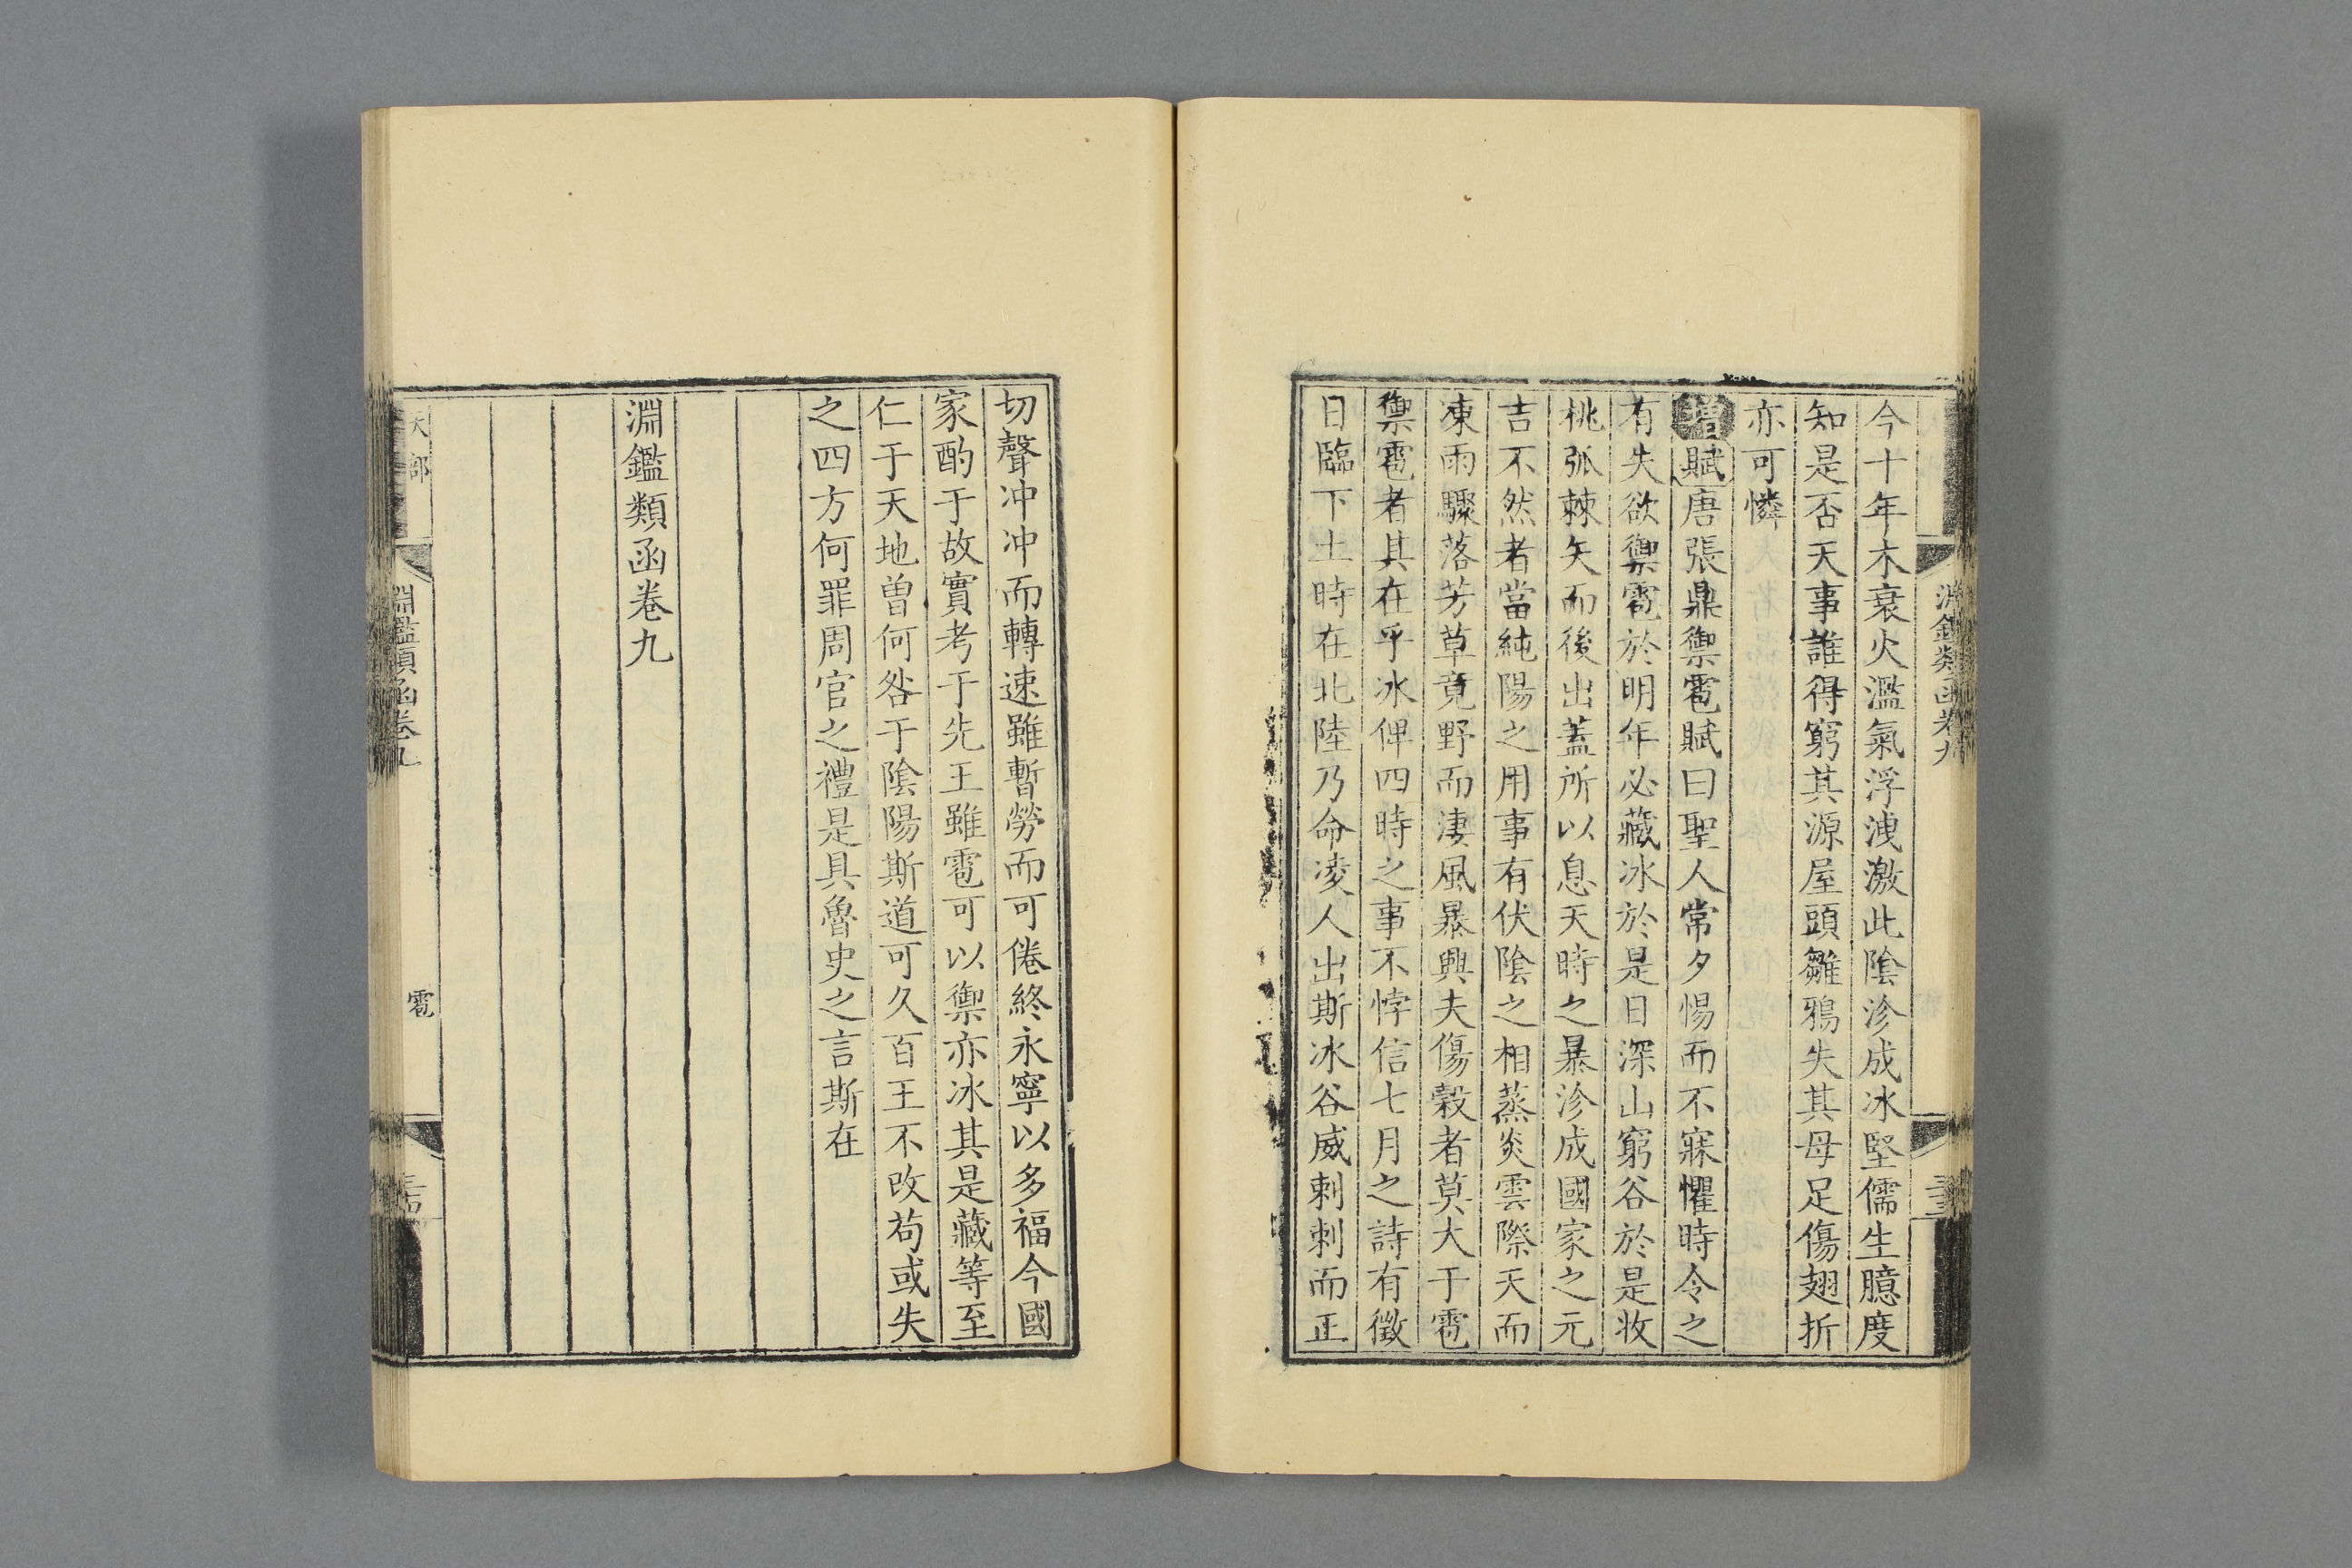 淵鑑類函卷九
今十年木衰火濫氣浮洩激此陰沴成冰堅儒生臆度
知是否天事誰得窮其源屋頭雛鴉失其母足傷翅折
亦可憐
增賦唐張鼎禦雹賦曰聖人常夕惕而不寐懼時令之
有失欲禦雹於明年必藏冰於是日深山窮谷於是收
桃弧棘矢而後出蓋所以息天時之暴沴成國家之元
吉不然者當純陽之用事有伏陰之相蒸炎雲際天而
凍雨驟落芳草竟野而淒風暴興夫傷穀者莫大于雹
禦雹者其在乎冰俾四時之事不悖信七月之詩有徵
日臨下土時在北陸乃命凌人出斯冰谷威剌剌而正
切聲冲冲而轉速雖暫勞而可倦終永寧以多福今國
家酌于故實考于先王雖雹可以禦亦冰其是藏等至
仁于天地曾何咎于陰陽斯道可久百王不改苟或失
之四方何罪周官之禮是具魯史之言斯在
淵鑑類函卷九
天部
淵鑑類函卷九
雹